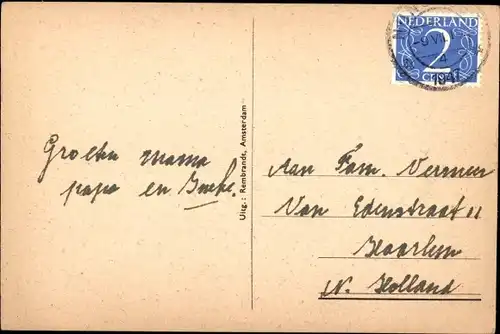 NEDERLAND
2
CENT
1947
Groeten mama
papa en
Uitg.: Rembrandt, Amsterdam
Aan Fam. Vermeer
Van Edenstraat 11
Haarlem
N. Holland